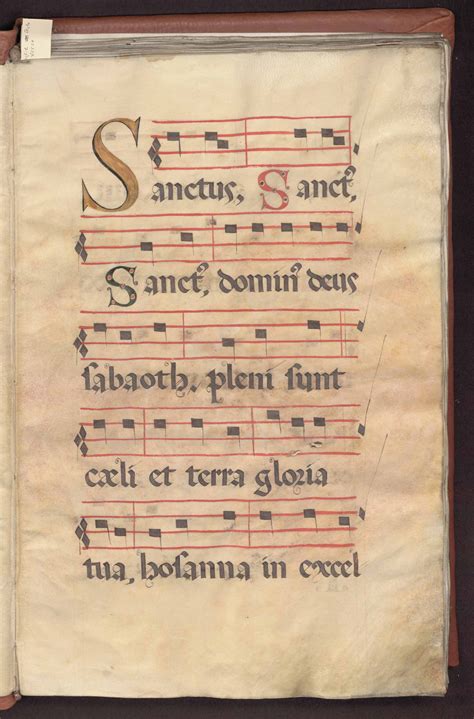 Sanctus, Sanctꝰ,
Sanctꝰ, dominꝰ deus
sabaoth, pleni sunt
cæli et terra gloria
tua, hosanna in excel